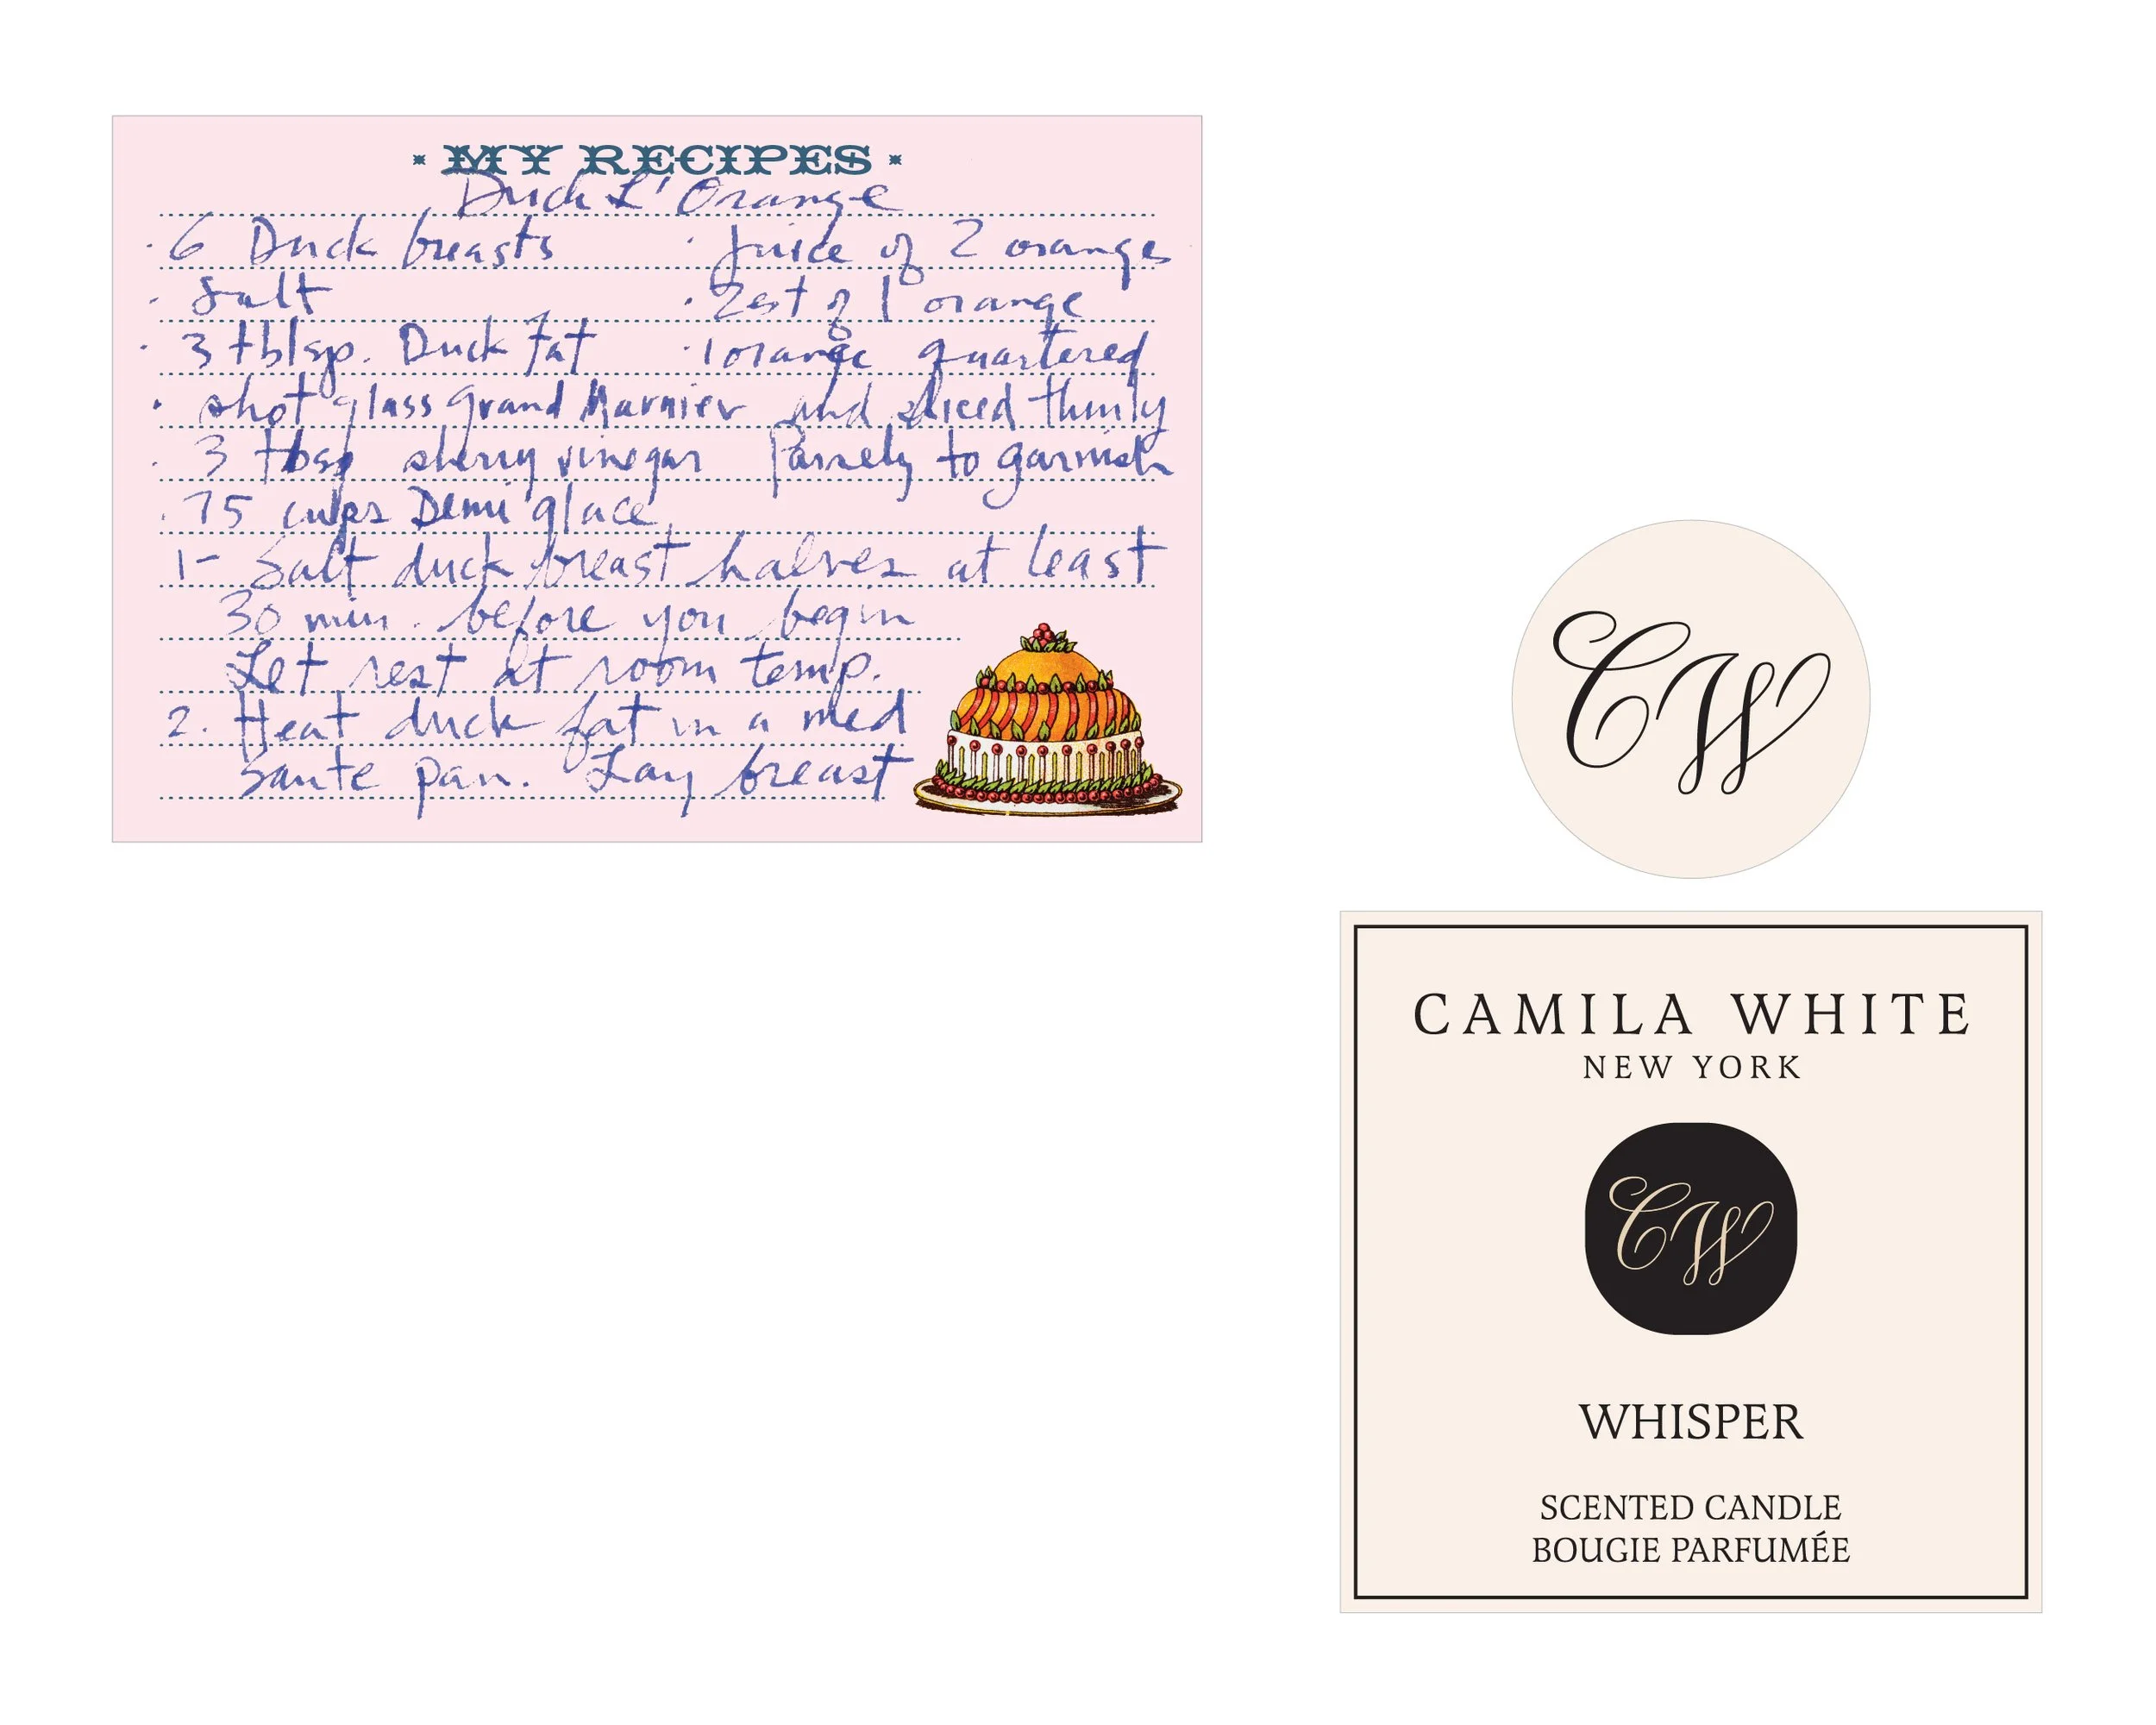 · MY RECIPES ·
Duck L'Orange
· 6 Duck breasts · Juice of 2 oranges
· Salt · Zest of 1 orange
· 3 tblsp. Duck fat · 1 orange quartered
· shot glass Grand Marnier and sliced thinly
· 3 tbsp sherry vinegar Parsely to garnish
. 75 cups Demi glace
1- Salt duck breast halves at least
30 min. before you begin
Let rest at room temp.
2. Heat duck fat in a med
saute pan. Lay breast
CW
CAMILA WHITE
NEW YORK
CW
WHISPER
SCENTED CANDLE
BOUGIE PARFUMÉE